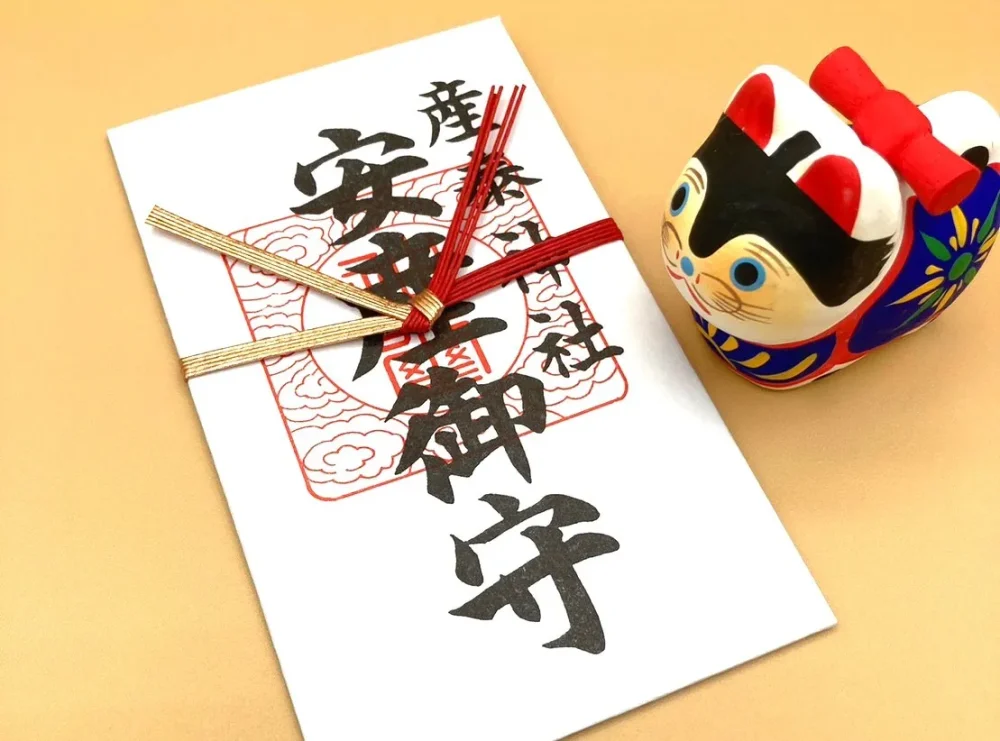 産泰神社
安産御守